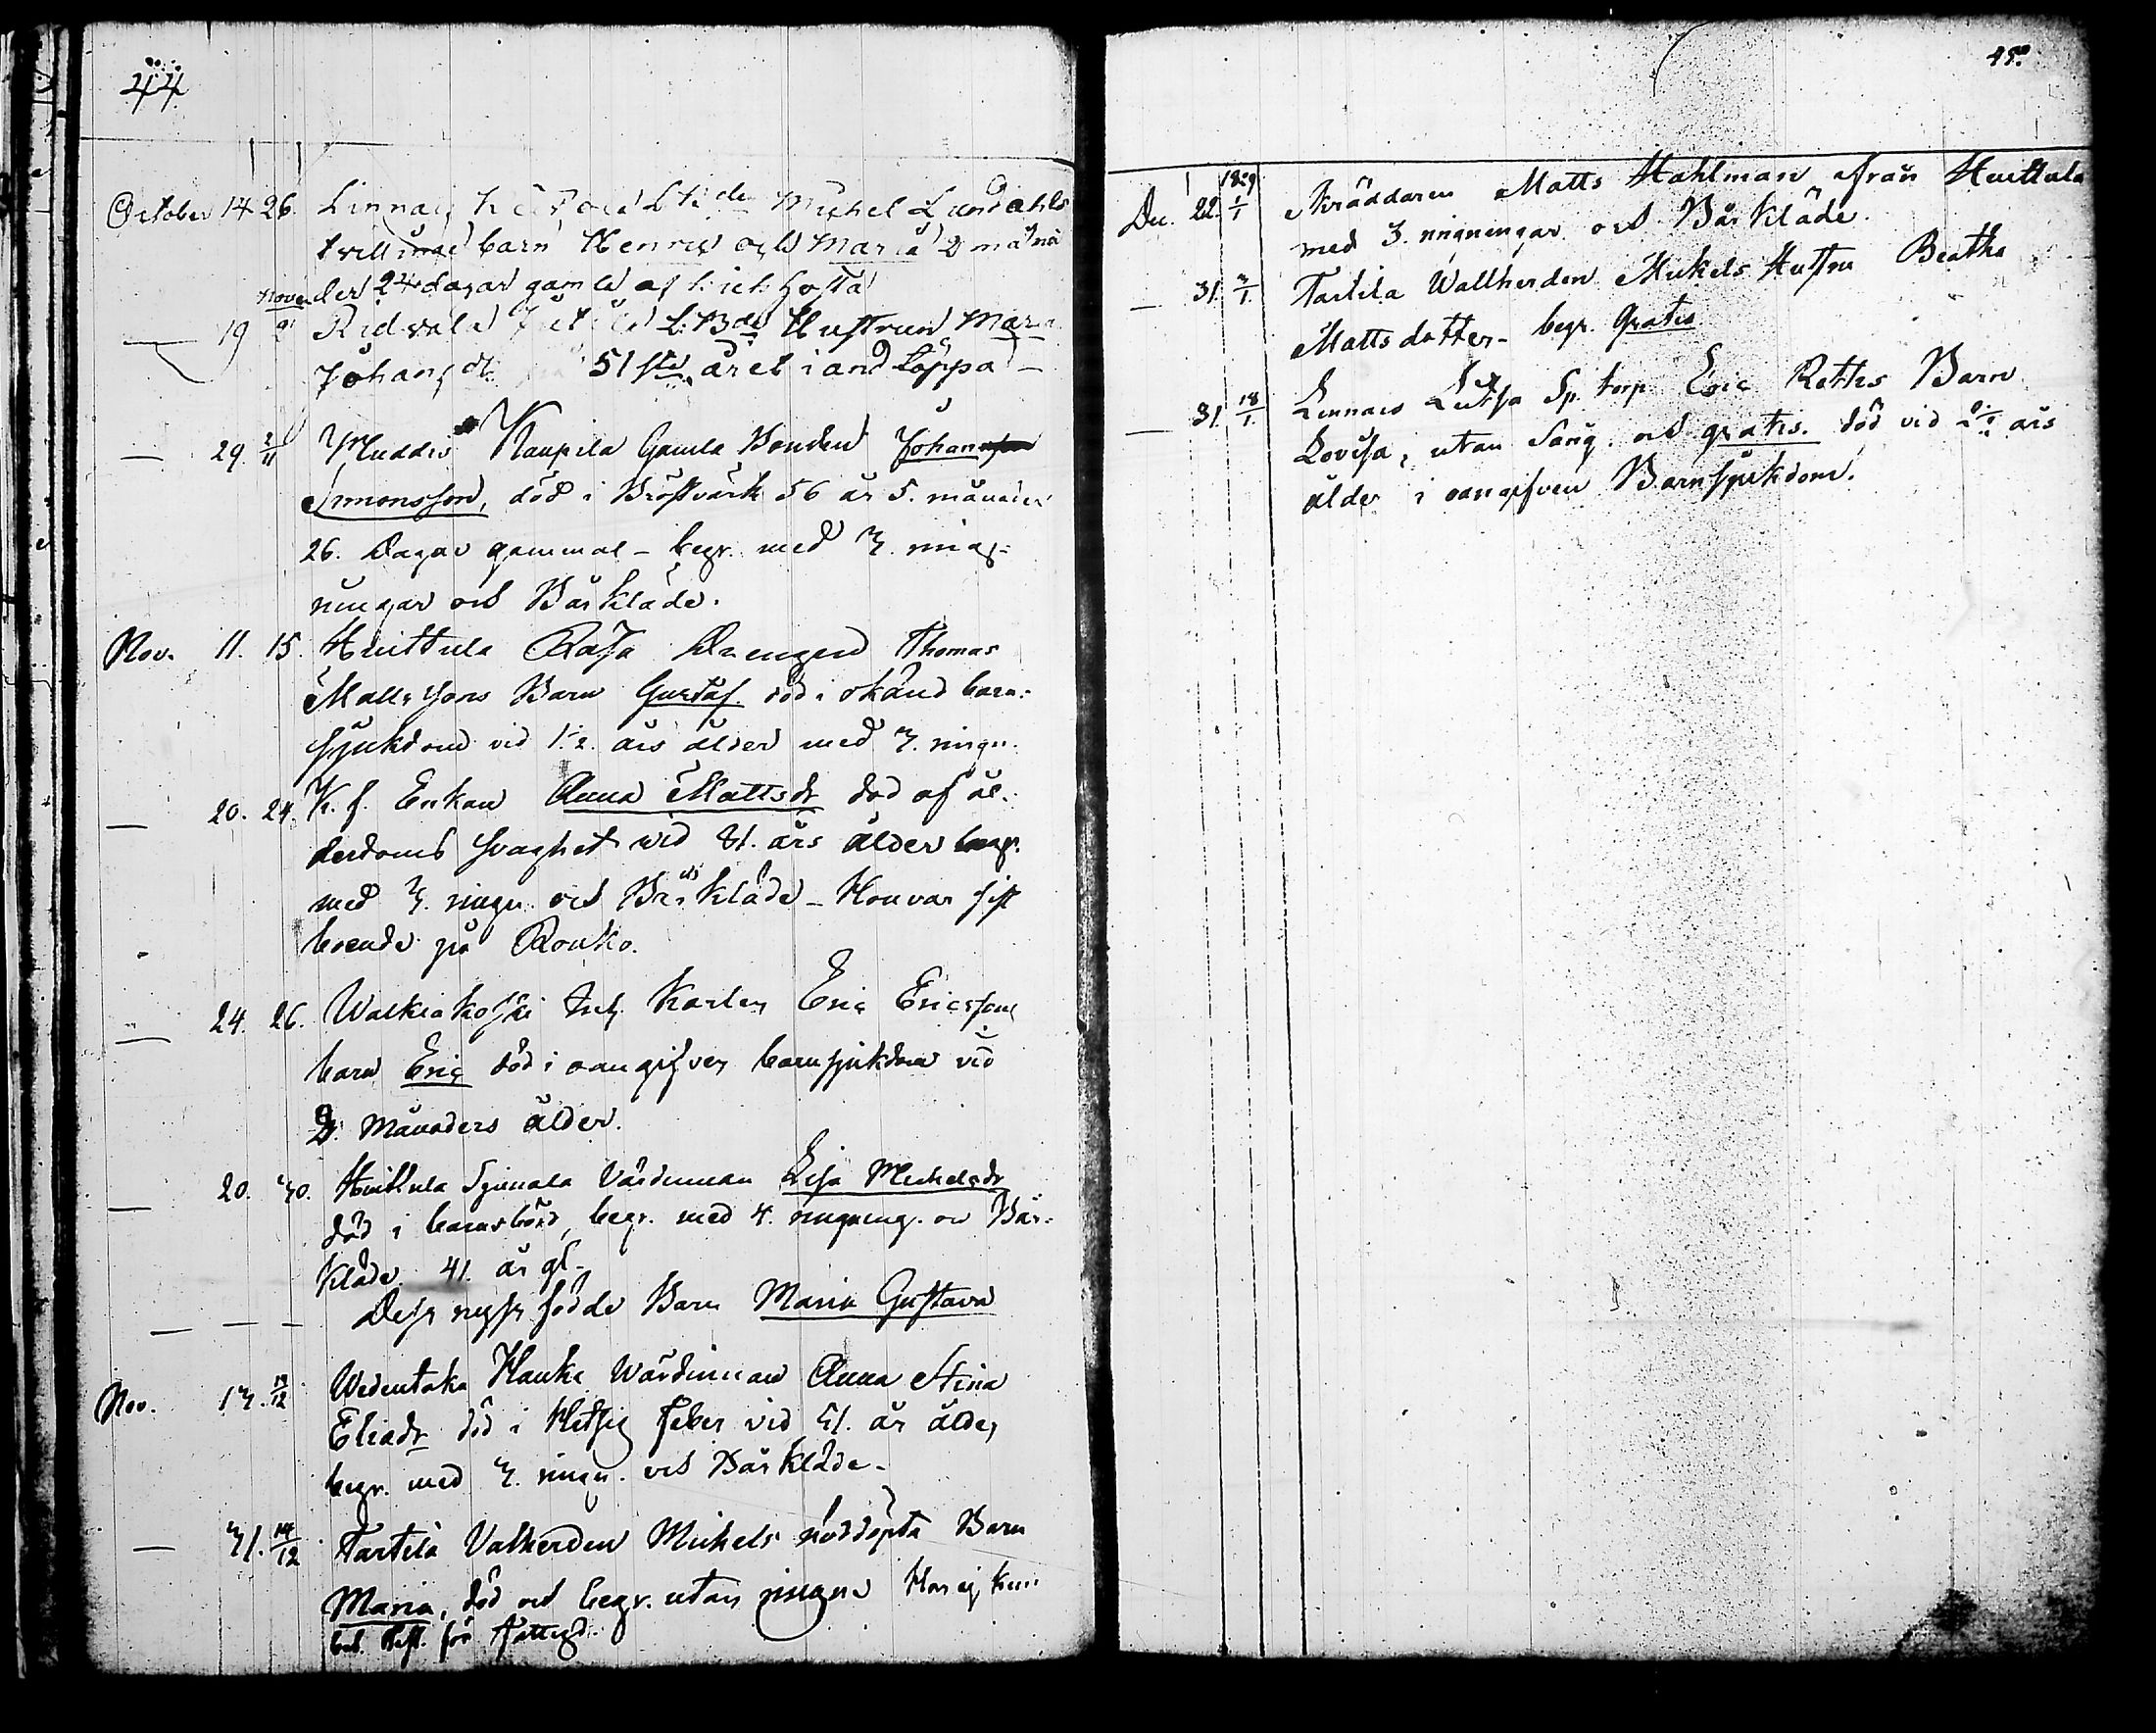 44
October 14 26. Linnais Michel Lundahls
tvillinge barn Henric och Maria 2 måna
der 24 dagar gamla af kickhosta
Nove
19 2 Ridvala L: Bde Hustrun Maria
Johansdr 51 sta året i and täppa –
— 29. 2/11 Muddis Kaupila Gamla Bonden Johan
Simonsson, död i Bröstvärk 56 år 5. månader
26. Dagar gammal – begr. med 3. ring=
ningar och Bårkläde.
Nov. 11. 15. Huittula Rasa Drengen Thomas
Mattssons Barn Gustaf. död i okänd barn-
sjukdom vid 1 1/2. års ålder med 3. ringn.
— 20. 24. K. f. Enkan Anna Mattsdr död af ål-
derdoms svaghet vid 81. års ålder begr.
med 3. ringn. och Bårkläde – Hon var sist
boende på Ronko.
— 24. 26. Walkiakoski Karlen Eric Ericssons
barn Eric död i oangifven barnsjukdom vid
2. Månaders ålder.
— 20. 30. Huittula Värdinnan Lisa Michelsdr
död i barnsbörd, begr. med 4. ringning. och Bår-
kläde. 41. år gl.
— — — Dess nyss födde Barn Maria Gustava
Nov. 13. 14/12 Wedentaka Hauka Wärdinnan Anna Stina
Eliadr död i Hetsig feber vid 51. år ålder,
begr. med 3. ringn. och Bårkläde –
— 31. 14/12 Tartila Valherden Michels nöddöpta Barn
Maria, död och begr. utan ringn. Har ej kun
bet. för fattigd.
45.
1829
De. 22. 1/1 Skräddaren Matts Hahlman ifrån Huittula
med 3. ringningar och Bårkläde.
— 31. 3/1. Tartila Wallherden Mickels Hustru Beatha
Mattsdotter – begr. Gratis
— 31. 18/1. Linnais Sp. torp. Eric Reths Barn
Lovisa, utan Sång och gratis. död vid 2 1/2 års
ålder i oangifven Barnsjukdom.